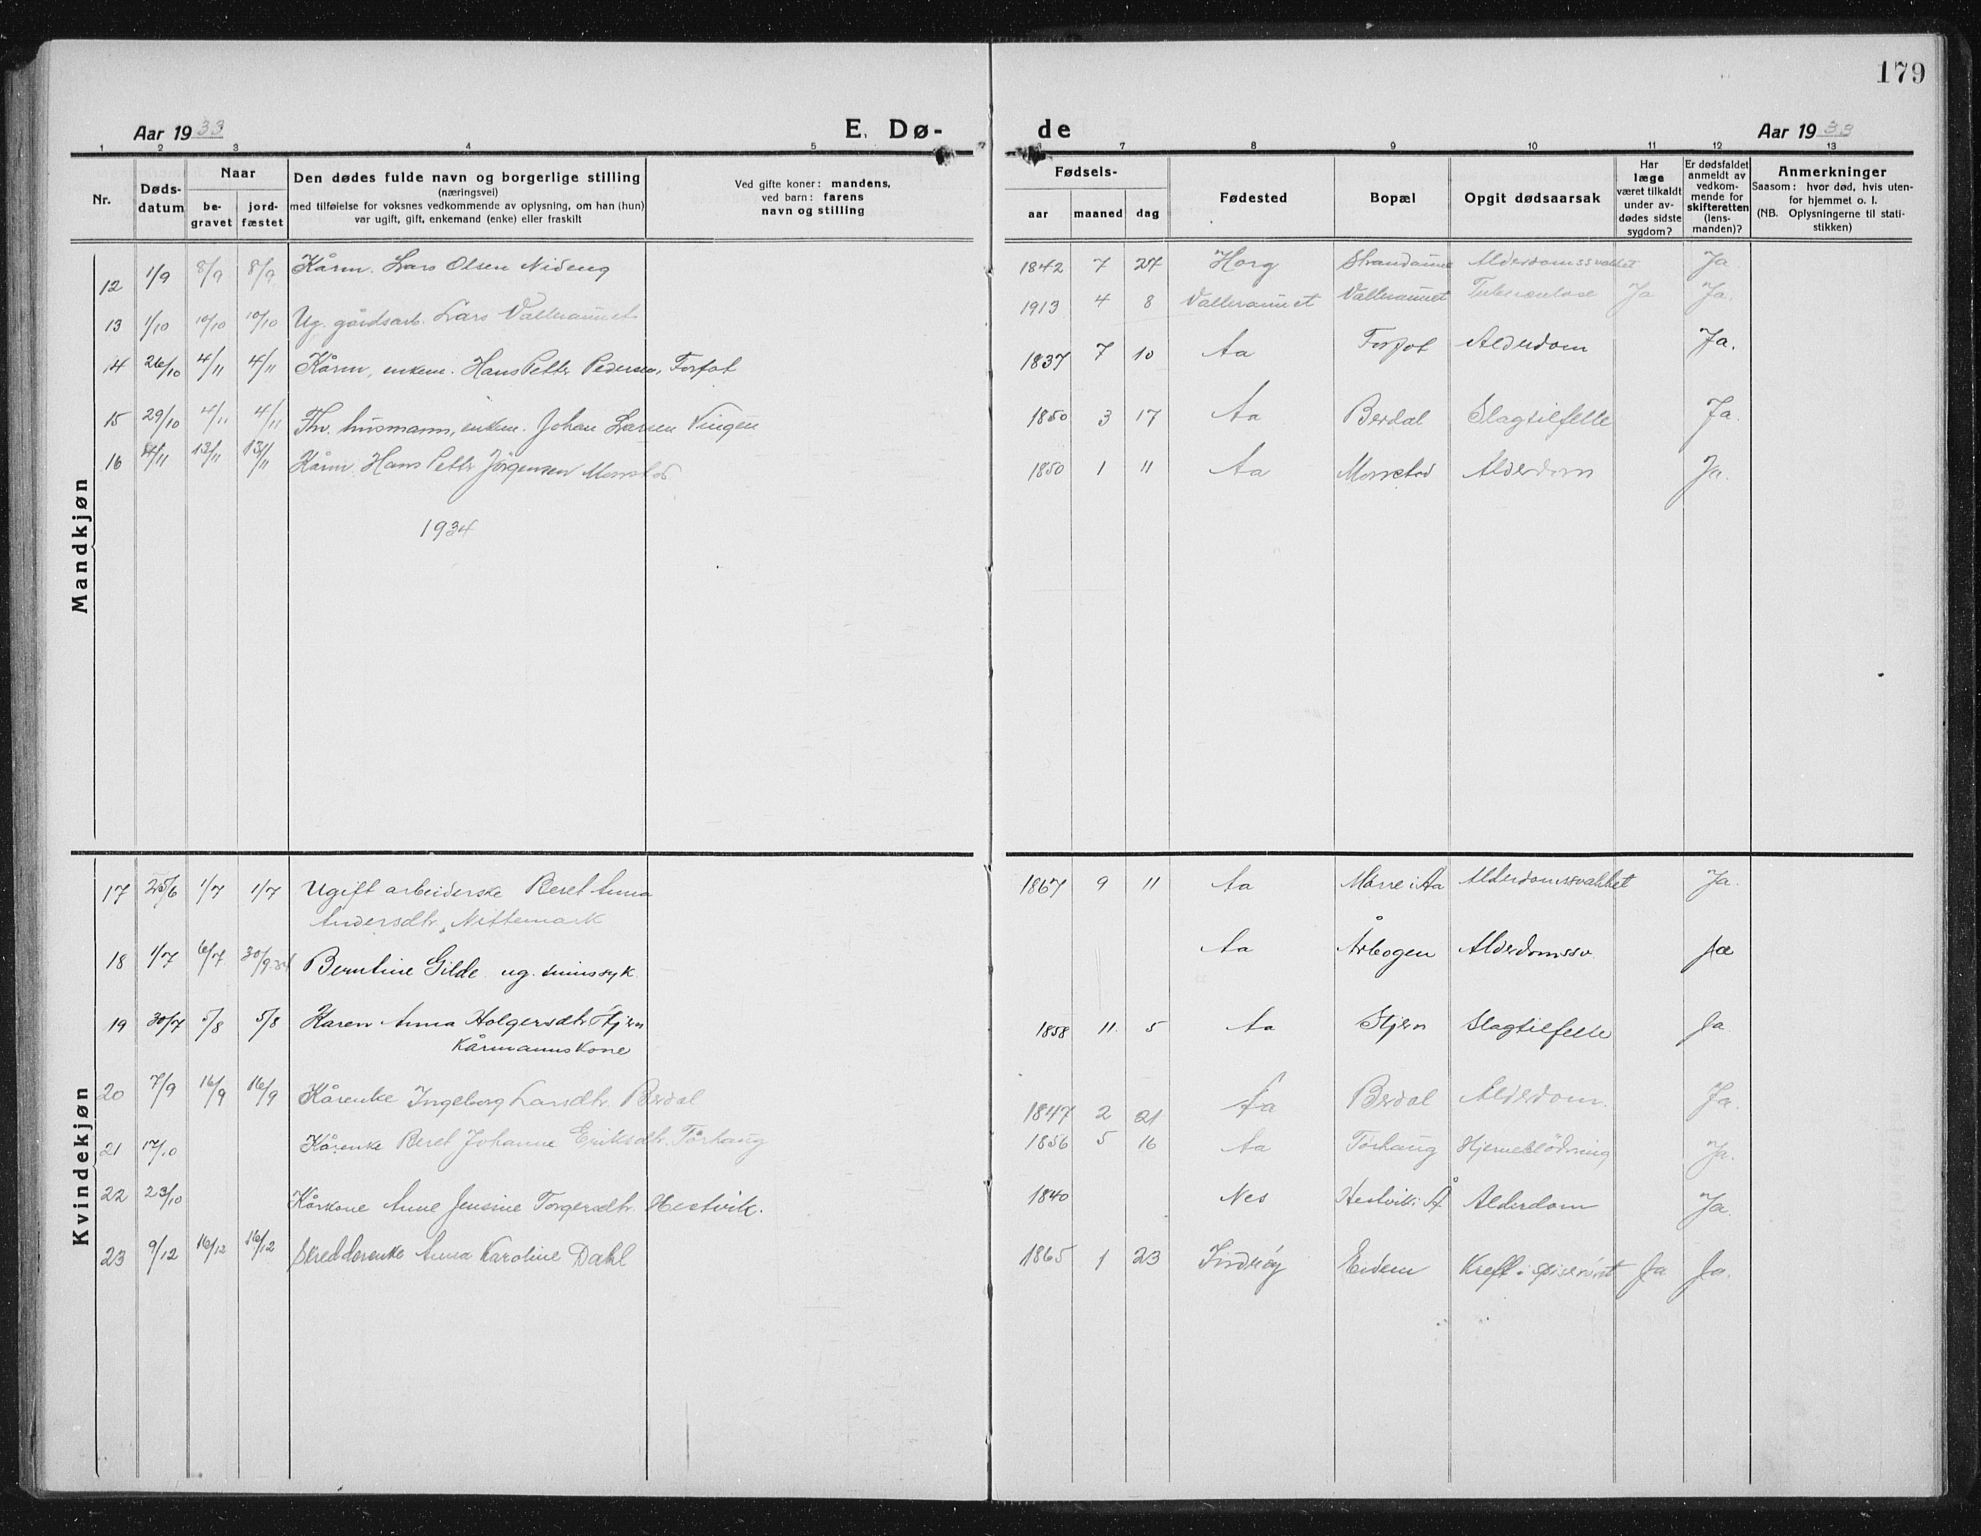 179
Aar 1933 E. Dø- de Aar 1933
1 2 3 4 5 7 8 9 10 11 12 13
Nr. Døds-datum Naar be-gravet jord-fæstet Den dødes fulde navn og borgerlige stilling (næringsvei) med tilføielse for voksnes vedkommende av oplysning, om han (hun) var ugift, gift, enkemand (enke) eller fraskilt Ved gifte koner: mandens, ved barn: farens navn og stilling Fødsels- aar maaned dag Fødested Bopæl Opgit dødsaarsak Har læge været tilkaldt under av-dødes sidste sygdom? Er dødsfaldet anmeldt av vedkom-mende for skifteretten (lens-manden)? Anmerkninger Saasom: hvor død, hvis uten-for hjemmet o. l. (NB. Oplysningerne til stati-stikken)
Mandkjøn
12 1/9 8/9 8/9 Kårm. Lars Olsen Nideng 1842 7 27 Horg Strandaunet Alderdomssvakhet Ja
13 1/10 10/10 10/10 Ug. gårdsarb. Lars Vatteraunet 1913 4 8 Vatteraunet Vatteraunet Tuberculose Ja Ja.
14 26/10 4/11 4/11 Kårm, enkem. Hans Petter Pedersen, Forfot 1837 7 10 Aa Forfot Alderdom Ja.
15 29/10 4/11 4/11 Fhv. husmann, enkem. Johan Larsen Vingen 1850 3 17 Aa Berdal Slagtilfelle Ja.
16 4/11 13/11 13/11 Kårm. Hans Petter Jörgensen Morrstad 1850 1 11 Aa Morrstad Alderdom Ja.
1934
Kvindekjøn
17 25/6 1/7 1/7 Ugift arbeiderske Beret Anna 1867 9 11 Aa Mørre i Aa Alderdomssvakhet Ja.
Andersdtr. Nittemark
18 1/7 6/7 30/9.34 Berntine Gilde ug. sinnssyk. Aa Årbogen Alderdomssv. Ja
19 30/7 5/8 5/8 Karen Anna Holgersdtr Stjern 1858 11. 5 Aa Stjern Slagtilfelle Ja
Kårmannskone
20 7/9 16/9 16/9 Kårenke Ingeborg Larsdtr. Berdal 1847 2 21 Aa Berdal Alderdom. Ja.
21 17/10 Kårenke Beret Johanna Eriksdtr. Tørhaug 1856 5 16 Aa Tørhaug Hjerneblödning Ja.
22 23/10 Kårkone Anne Jensine Torgersdtr. Hestvik. 1840 Nes Hestvik i Å Alderdom Ja.
23 9/12 16/12 16/12 Skredderenke Anna Karoline Dahl 1865 1 23 Inderøy Eidem Kreft i spiserøret Ja Ja.